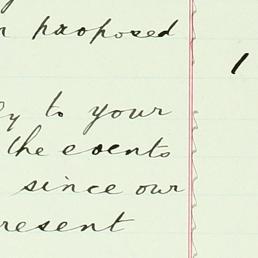 proposed
to your
the events
since our
resent